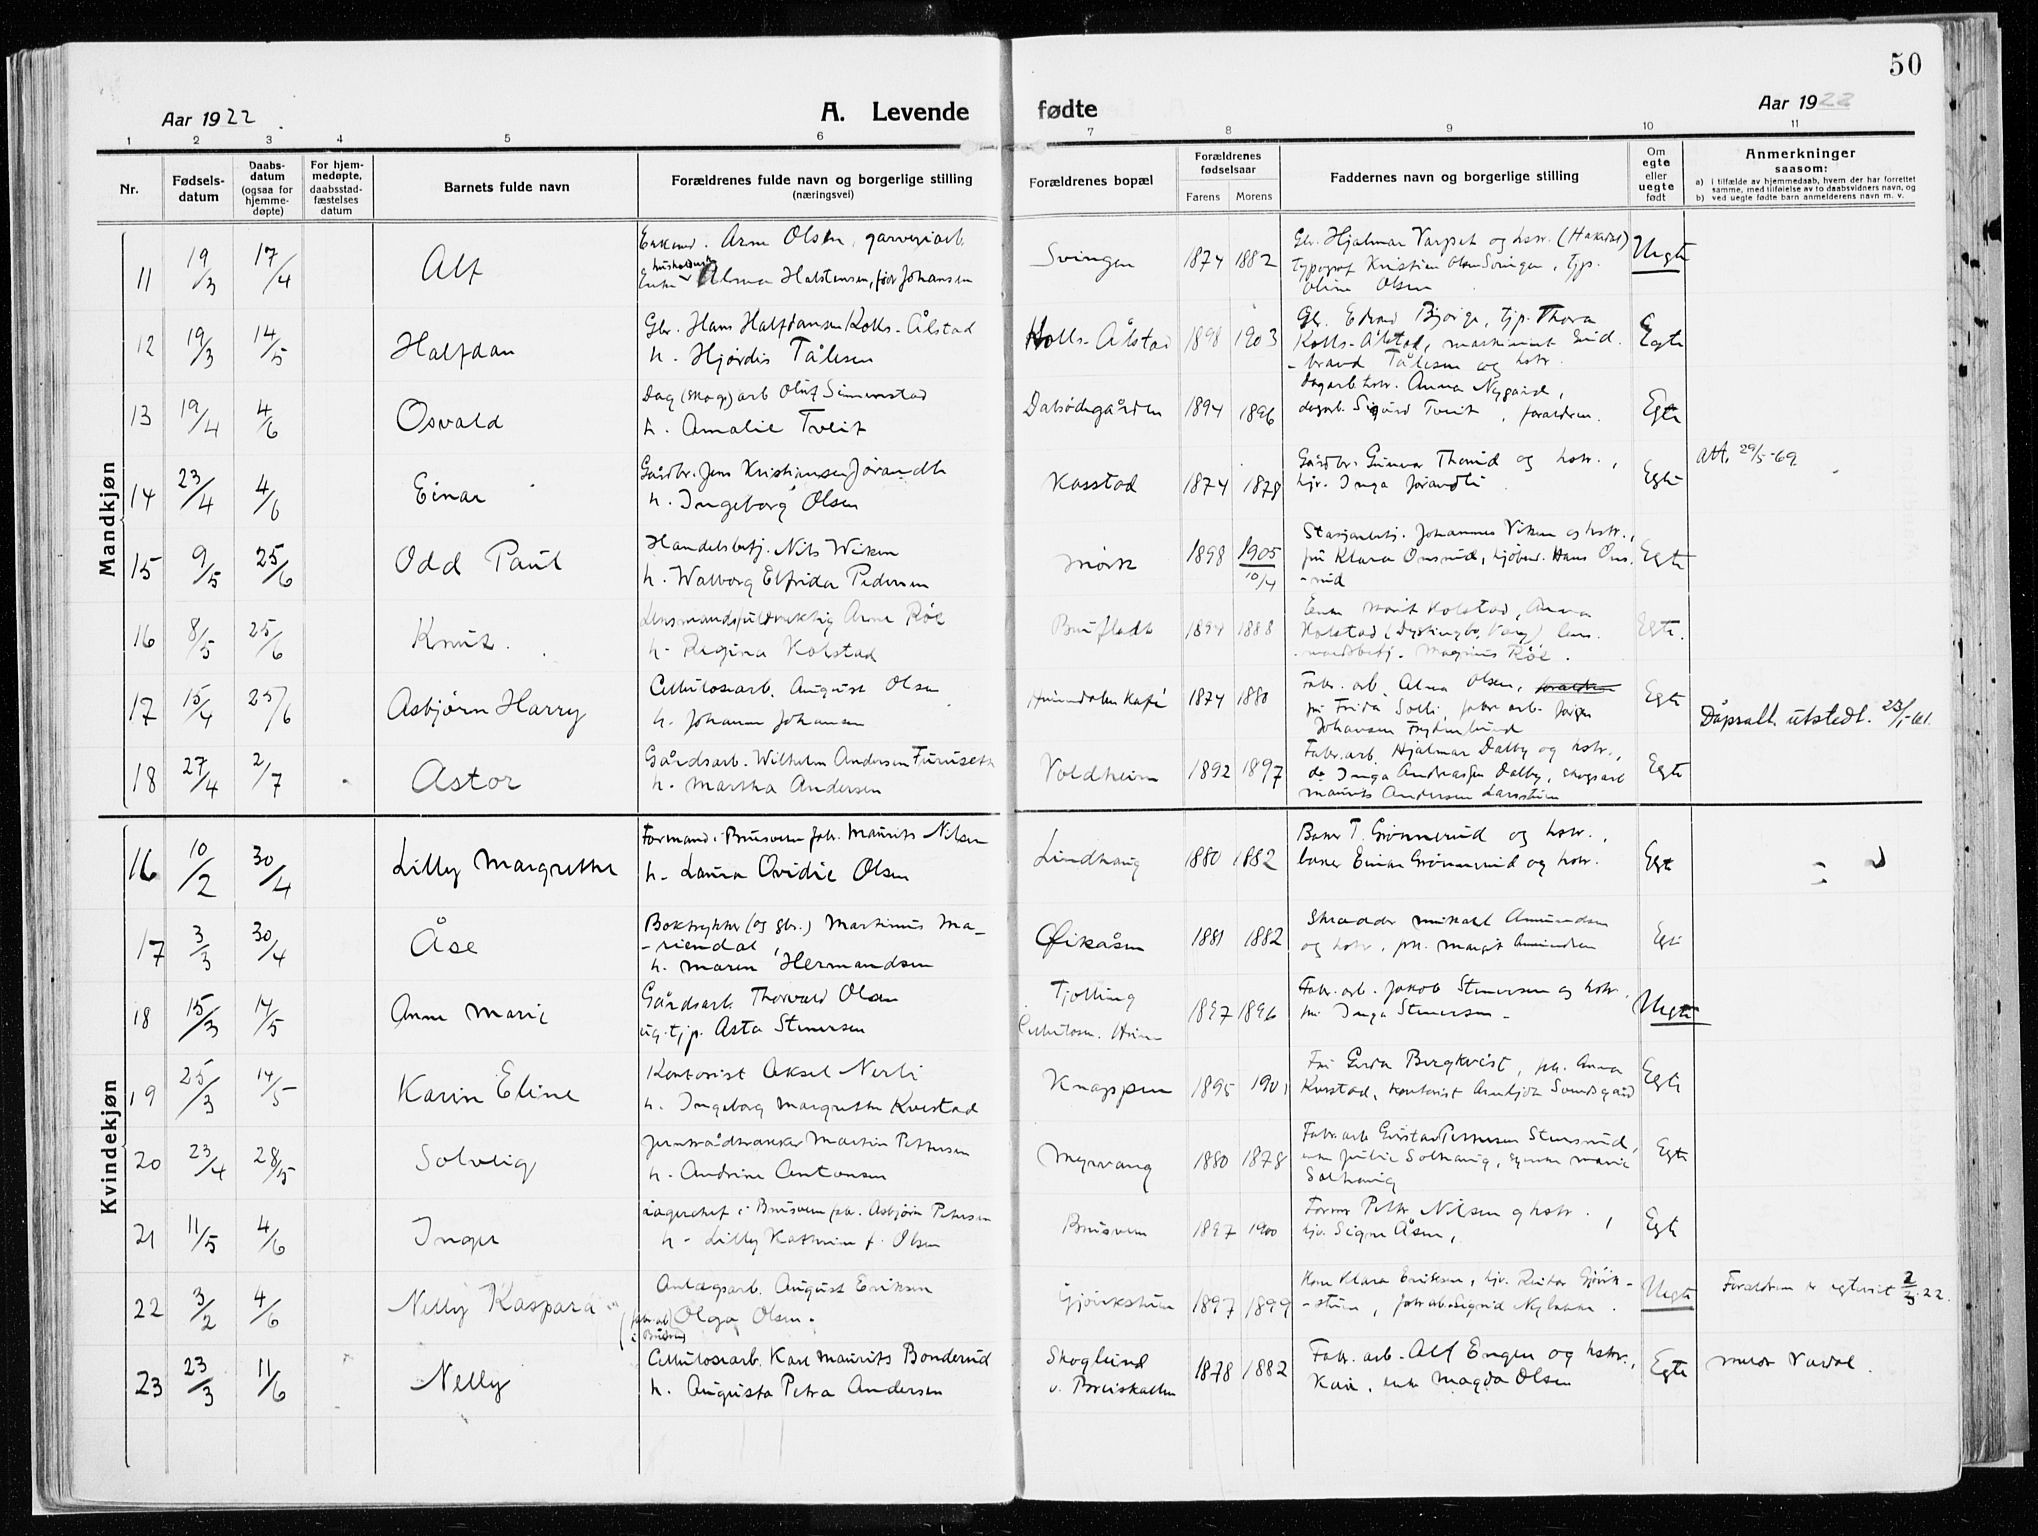 50
Aar 1922.
A. Levende fødte
Aar 1922
1 2 3 4 5 6 7 8 9 10 11
Nr.
Fødsels-
datum
Daabs-
datum
(ogsaa for
hjemme-
døpte)
For hjem-
medøpte,
daabsstad-
fæstelses
datum
Barnets fulde navn
Forældrenes fulde navn og borgerlige stilling
(næringsvei)
Forældrenes bopæl
Forældrenes
fødselsaar
Farens Morens
Faddernes navn og borgerlige stilling
Om
egte
eller
uegte
født
Anmerkninger
saasom:
a) i tilfælde av hjemmedaab, hvem der har forrettet
samme, med tilføielse av to daabsvidners navn, og
b) ved uegte fødte barn anmelderens navn m. v.
Mandkjøn
11 19/3 17/4 Alf
Enkemd. Arne Olsen, garveriarb.
Enke Alma Halstensen, født Johansen
Svingen 1874 1882
Gbr. Hjalmar Varpet og hstr.
typograf Kristian Olsen Svingen, tjp.
Oline Olsen
Uegte
12 19/3 14/5 Halfdan
Gbr. Hans Halfdansen Kolls-Ålstad
h. Hjørdis Tålesen
Kolls-Ålstad 1898 1903
Gbr. Edvard Bjørge, tjp. Thora
Kolls-Ålstad, maskinist Gud-
-brand Tålesen og hstr.
Egte
13 19/4 4/6 Osvald
Dag (Mag) arb Oluf Simenstad
h. Amalie Tveit
Dalsødegården 1894 1896
dagarb. hstr. Anna Nygård,
dagarb. Sigurd Tveit, forældren.
Egte
14 23/4 4/6 Einar
Gårdbr. Jens Kristiansen Jørandli
h. Ingeborg Olsen
Kasstad 1874 1878
Gårdbr. Gunnar Thorud og hstr.,
hjv. Inga Jørandli
Egte
att. 29/5-69.
15 9/5 25/6 Odd Paul
Handelsbetj. Nils Wiken
h. Walborg Elfrida Pedersen
Mørk 1898 1905
10/4
Stasjonsbetj. Johannes Viken og hstr.,
frk Klara Onsrud, kjøbmd. Hans Ons-
-rud
Egte
16 8/5 25/6 Knut.
Lensmandsfuldmektig Arne Røe
h. Regina Kolstad
Brufladt 1894 1888
Enke Marit Kolstad, Anna
Kolstad (Dystingbo, Vang) lens-
mandsbetj. Magnus Røe.
Egte.
17 15/4 25/6 Asbjørn Harry
Cellulosearb. August Olsen
h. Johanne Johansen
Hunndalen Kafé 1874 1880
Fabr. arb. Alma Olsen, forældren
frk Frida Solli, fabr. arb. Jørgen
Johansen Frydenlund
Egte
Dåpsatt. utstedt. 23/1-61.
18 27/4 2/7 Astor
Gårdsarb. Wilhelm Andersen Furuseth
h. Martha Andersen
Voldheim 1892 1897
Fabr. arb. Hjalmar Dalby og hstr.,
do Inga Andreassen Dalby, skogsarb
Maurits Andersen Larsstuen
Egte
Kvindekjøn
16 10/2 30/4 Lilly Margrethe
Formand i Brusveen fabr. Maurits Nilsen
h. Laura Ovidie Olsen
Lindhaug 1880 1882
Baker T. Grønnerud og hstr.,
baker Einar Grønnerud og hstr.
Egte
17 3/3 30/4 Åse
Boktrykker (og gbr.) Martinus Ma-
-riendal,
h. Maren Hermandsen
Øikåsen 1881 1882
Skrædder Mikael Amundsen
og hstr., frk. Margit Amundsen
Egte
18 15/3 14/5 Anne Marie
Gårdsarb Thorvald Olsen
ug. tjp. Asta Stenersen
Tjølling
Cellulosen. Hunn
1897 1896
Fabr. arb. Jakob Stenersen og hstr.,
frk Inga Stenersen.
Uegte
19 25/3 14/5 Karin Eline
Kontorist Aksel Nerli
h. Ingeborg Margrethe Kvestad
Knappen 1895 1901
Fru Gerda Bergkvist, frk. Anna
Kvestad, kontorist Arnljot Sundsgård
Egte
20 23/4 28/5 Solveig
Jerntraadtrækker Martin Pettersen
h. Andrine Antonsen
Myrvang 1880 1878
Fabr. arb Gustav Pettersen Stensrud,
enke Julie Solhaug, Marie
Solhaug
Egte
21 11/5 4/6 Inger
Lagerchef i Brusveen fabr. Asbjørn Petersen
h. Lilly Kathrine f. Olsen
Brusveen 1897 1900
Former Petter Nilsen og hstr.,
hjv. Signe Åsen,
Egte
22 3/2 4/6 Nelly Kaspara
Anlægsarb. August Eriksen
(fabr. arb Olga Olsen.
Gjøvikstuen 1897 1899
Kone Klara Eriksen, hjv. Gjøvik-
-stuen, fabr. arb Sigrid Nybakke.
Uegte
Forældrene er egteviet 2/3 22.
23 23/3 11/6 Nelly
Cellulosearb. Karl Maurits Bonderud
h. Augusta Petra Andersen
Skoglund
v. Breiskallen
1878 1882
Fabr. arb. Alf Engen og hstr.,
Kari, enke Magda Olsen
Egte
Meldt Vardal.